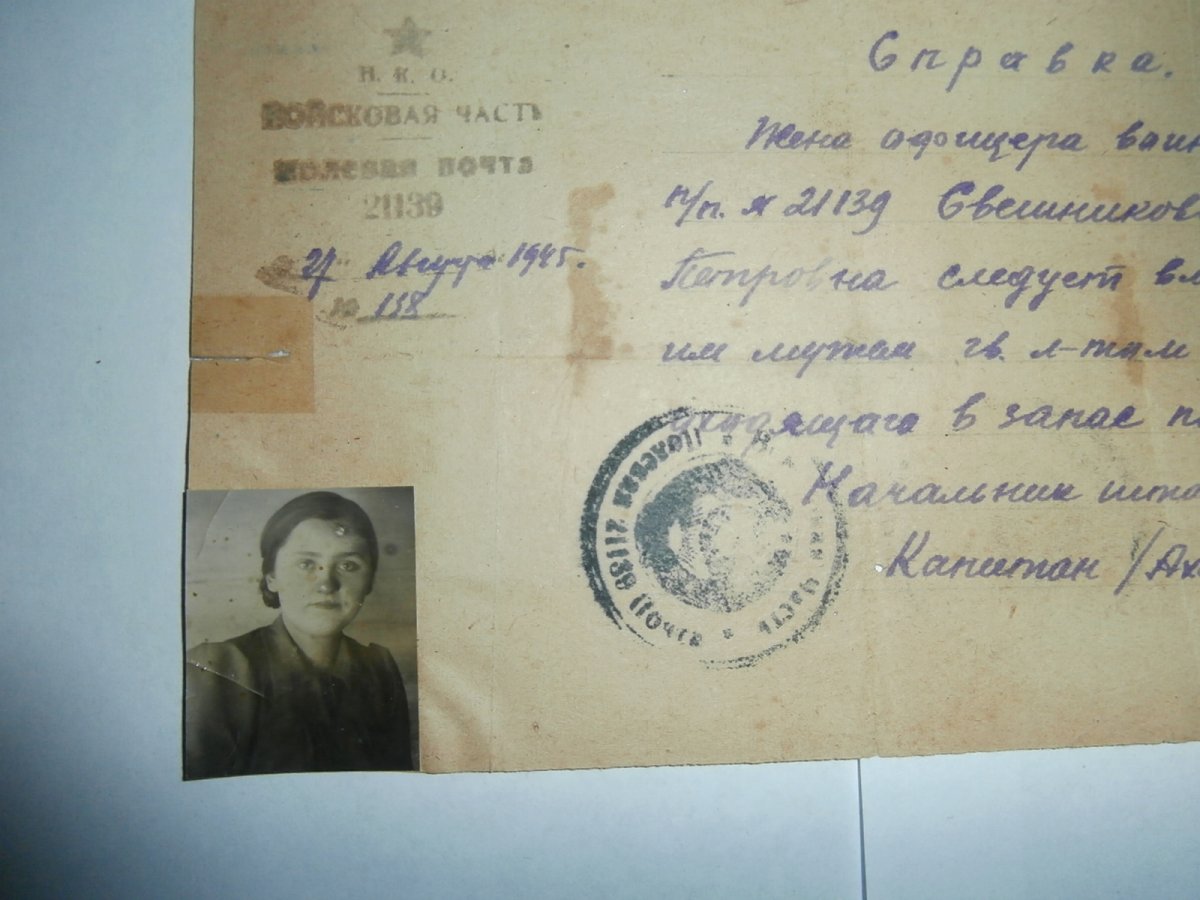 Н. К. О.
ВОЙСКОВАЯ ЧАСТЬ
полевая почта
21139
27 Августа 1945 г.
№ 138
Справка.
Жена офицера воин
п/п. № 21139 Свешников
Петровна следует вм
им мужем гв. л-том
уходящего в запас по
Начальник шта
Капитан /Ах
Полевая почта 21139
часть